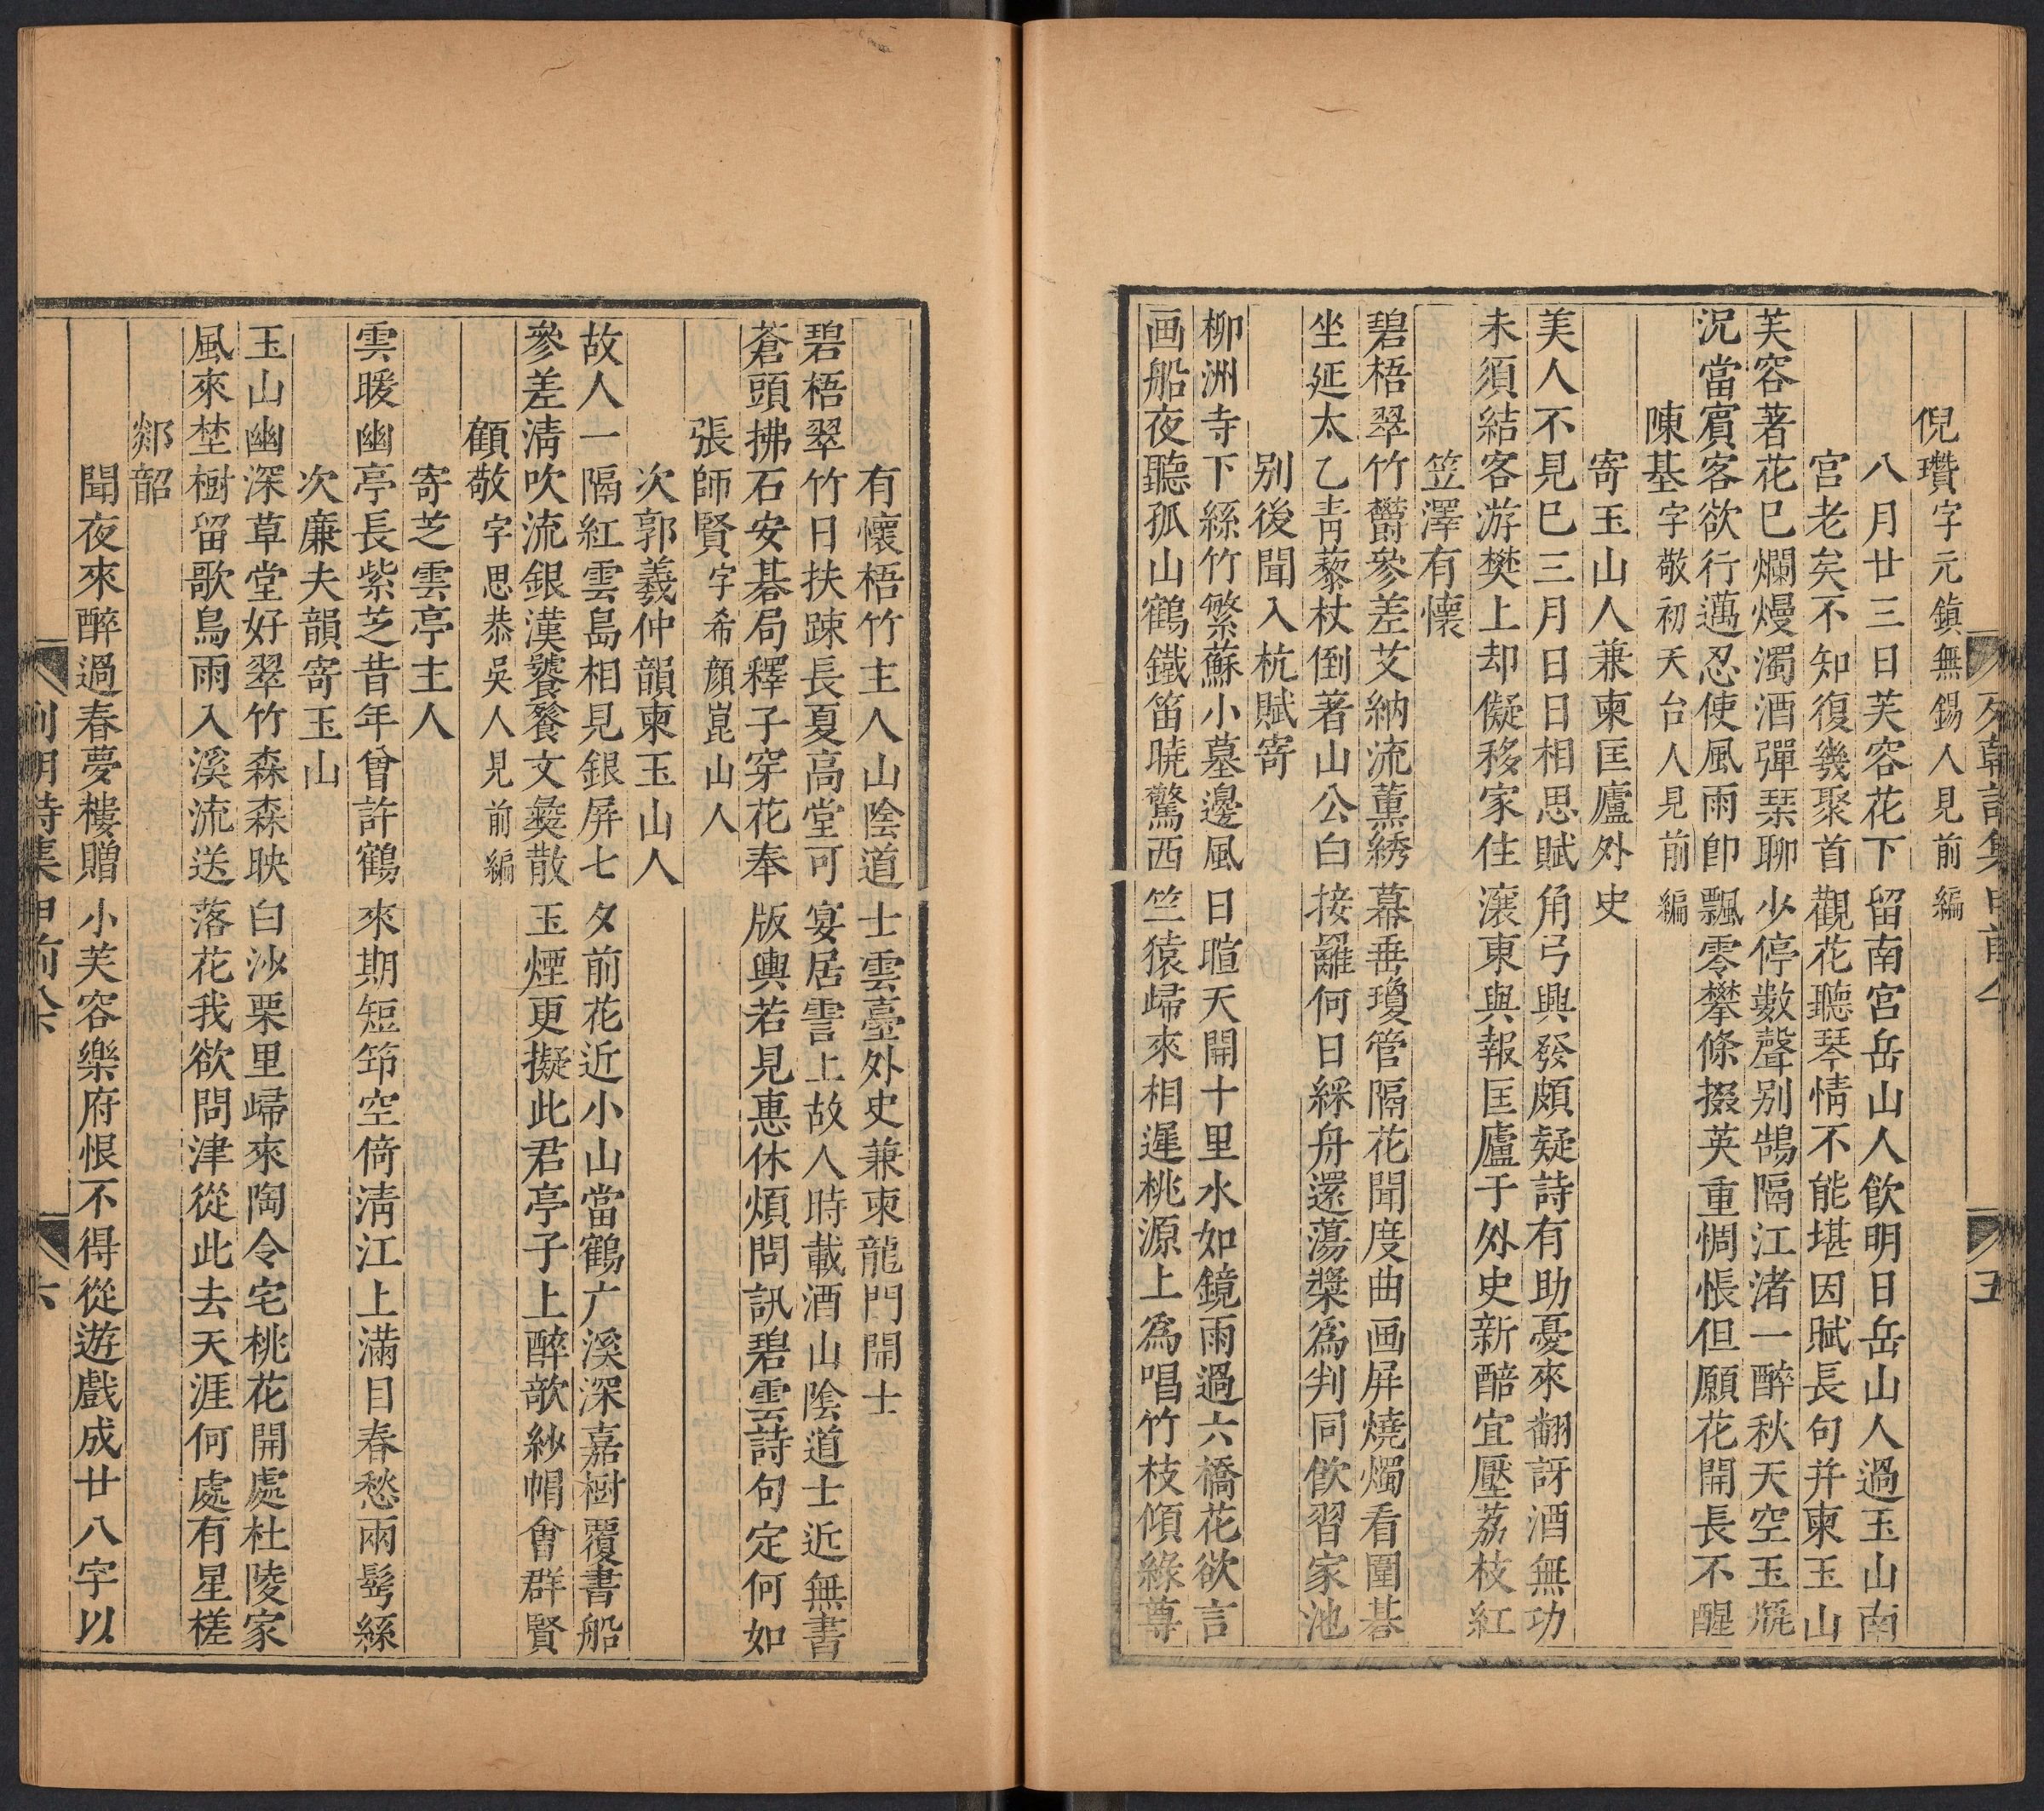 列朝詩集甲前八 五
倪瓚字元鎮無錫人見前編
八月廿三日芙容花下留南宮岳山人飲明日岳山人過玉山南
宮老矣不知復幾聚首觀花聽琴情不能堪因賦長句并柬玉山
芙容著花已爛熳濁酒彈琹聊少停數聲别鵠隔江渚一醉秋天空玉缾
況當賓客欲行邁忍使風雨卽飄零攀條掇英重惆悵但願花開長不醒
陳基字敬初天台人見前編
寄玉山人兼柬匡廬外史
美人不見巳三月日日相思賦角弓興發頗疑詩有助憂來翻訝酒無功
未須結客游樊上却儗移家住瀼東與報匡廬于外史新醅宜壓荔枝紅
笠澤有懷
碧梧翠竹欝參差艾納流薰綉幕垂瓊管隔花聞度曲画屏燒燭看圍碁
坐延太乙靑藜杖倒著山公白接䍦何日綵舟還蕩槳爲判同飮習家池
别後聞入杭賦寄
柳洲寺下絲竹繁蘇小墓邊風日暄天開十里水如鏡雨過六橋花欲言
画船夜聽孤山鶴鐵笛曉驚西竺猿歸來相遲桃源上爲唱竹枝傾綠尊
有懷梧竹主人山陰道士雲臺外史兼柬龍門開士
碧梧翠竹日扶踈長夏高堂可宴居霅上故人時載酒山陰道士近無書
蒼頭拂石安碁局釋子穿花奉版輿若見惠休煩問訊碧雲詩句定何如
張師賢字希顔崑山人
次郭羲仲韻柬玉山人
故人一隔紅雲島相見銀屏七夕前花近小山當鶴广溪深嘉樹覆書船
參差淸吹流銀漢饕餮文彝散玉煙更擬此君亭子上醉欹紗帽會群賢
顧敬字思恭吳人見前編
寄芝雲亭主人
雲暖幽亭長紫芝昔年曾許鶴來期短筇空倚淸江上滿目春愁兩髩絲
次廉夫韻寄玉山
玉山幽深草堂好翠竹森森映白沙栗里歸來陶令宅桃花開處杜陵家
風來埜樹留歌鳥雨入溪流送落花我欲問津從此去天涯何處有星槎
郯韶
聞夜來醉過春夢樓贈小芙容樂府恨不得從遊戲成廿八字以
列朝詩集甲前八 六